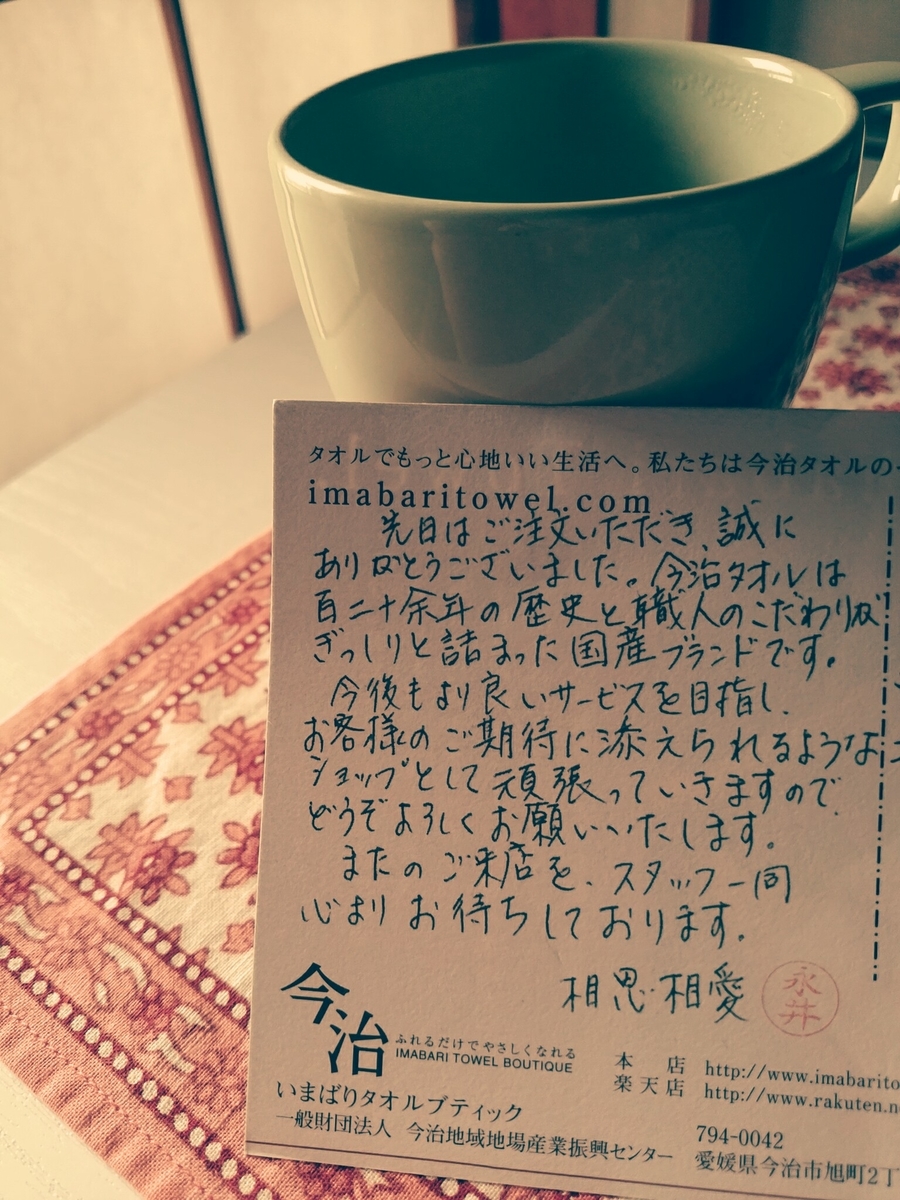 タオルでもっと心地いい生活へ。私たちは今治タオルの
imabaritowel.com
先日はご注文いただき、誠に
ありがとうございました。今治タオルは
百二十余年の歴史と職人のこだわりが
ぎっしりと詰まった国産ブランドです。
今後もより良いサービスを目指し、
お客様のご期待に添えられるような
ショップとして頑張っていきますので
どうぞよろしくお願いいたします。
またのご来店を、スタッフ一同
心よりお待ちしております。
相思相愛
永井
今治
ふれるだけでやさしくなれる
IMABARI TOWEL BOUTIQUE
いまばりタオルブティック
一般財団法人 今治地域地場産業振興センター
本店 http://www.imabarito
楽天店 http://www.rakuten.n
794-0042
愛媛県今治市旭町2丁